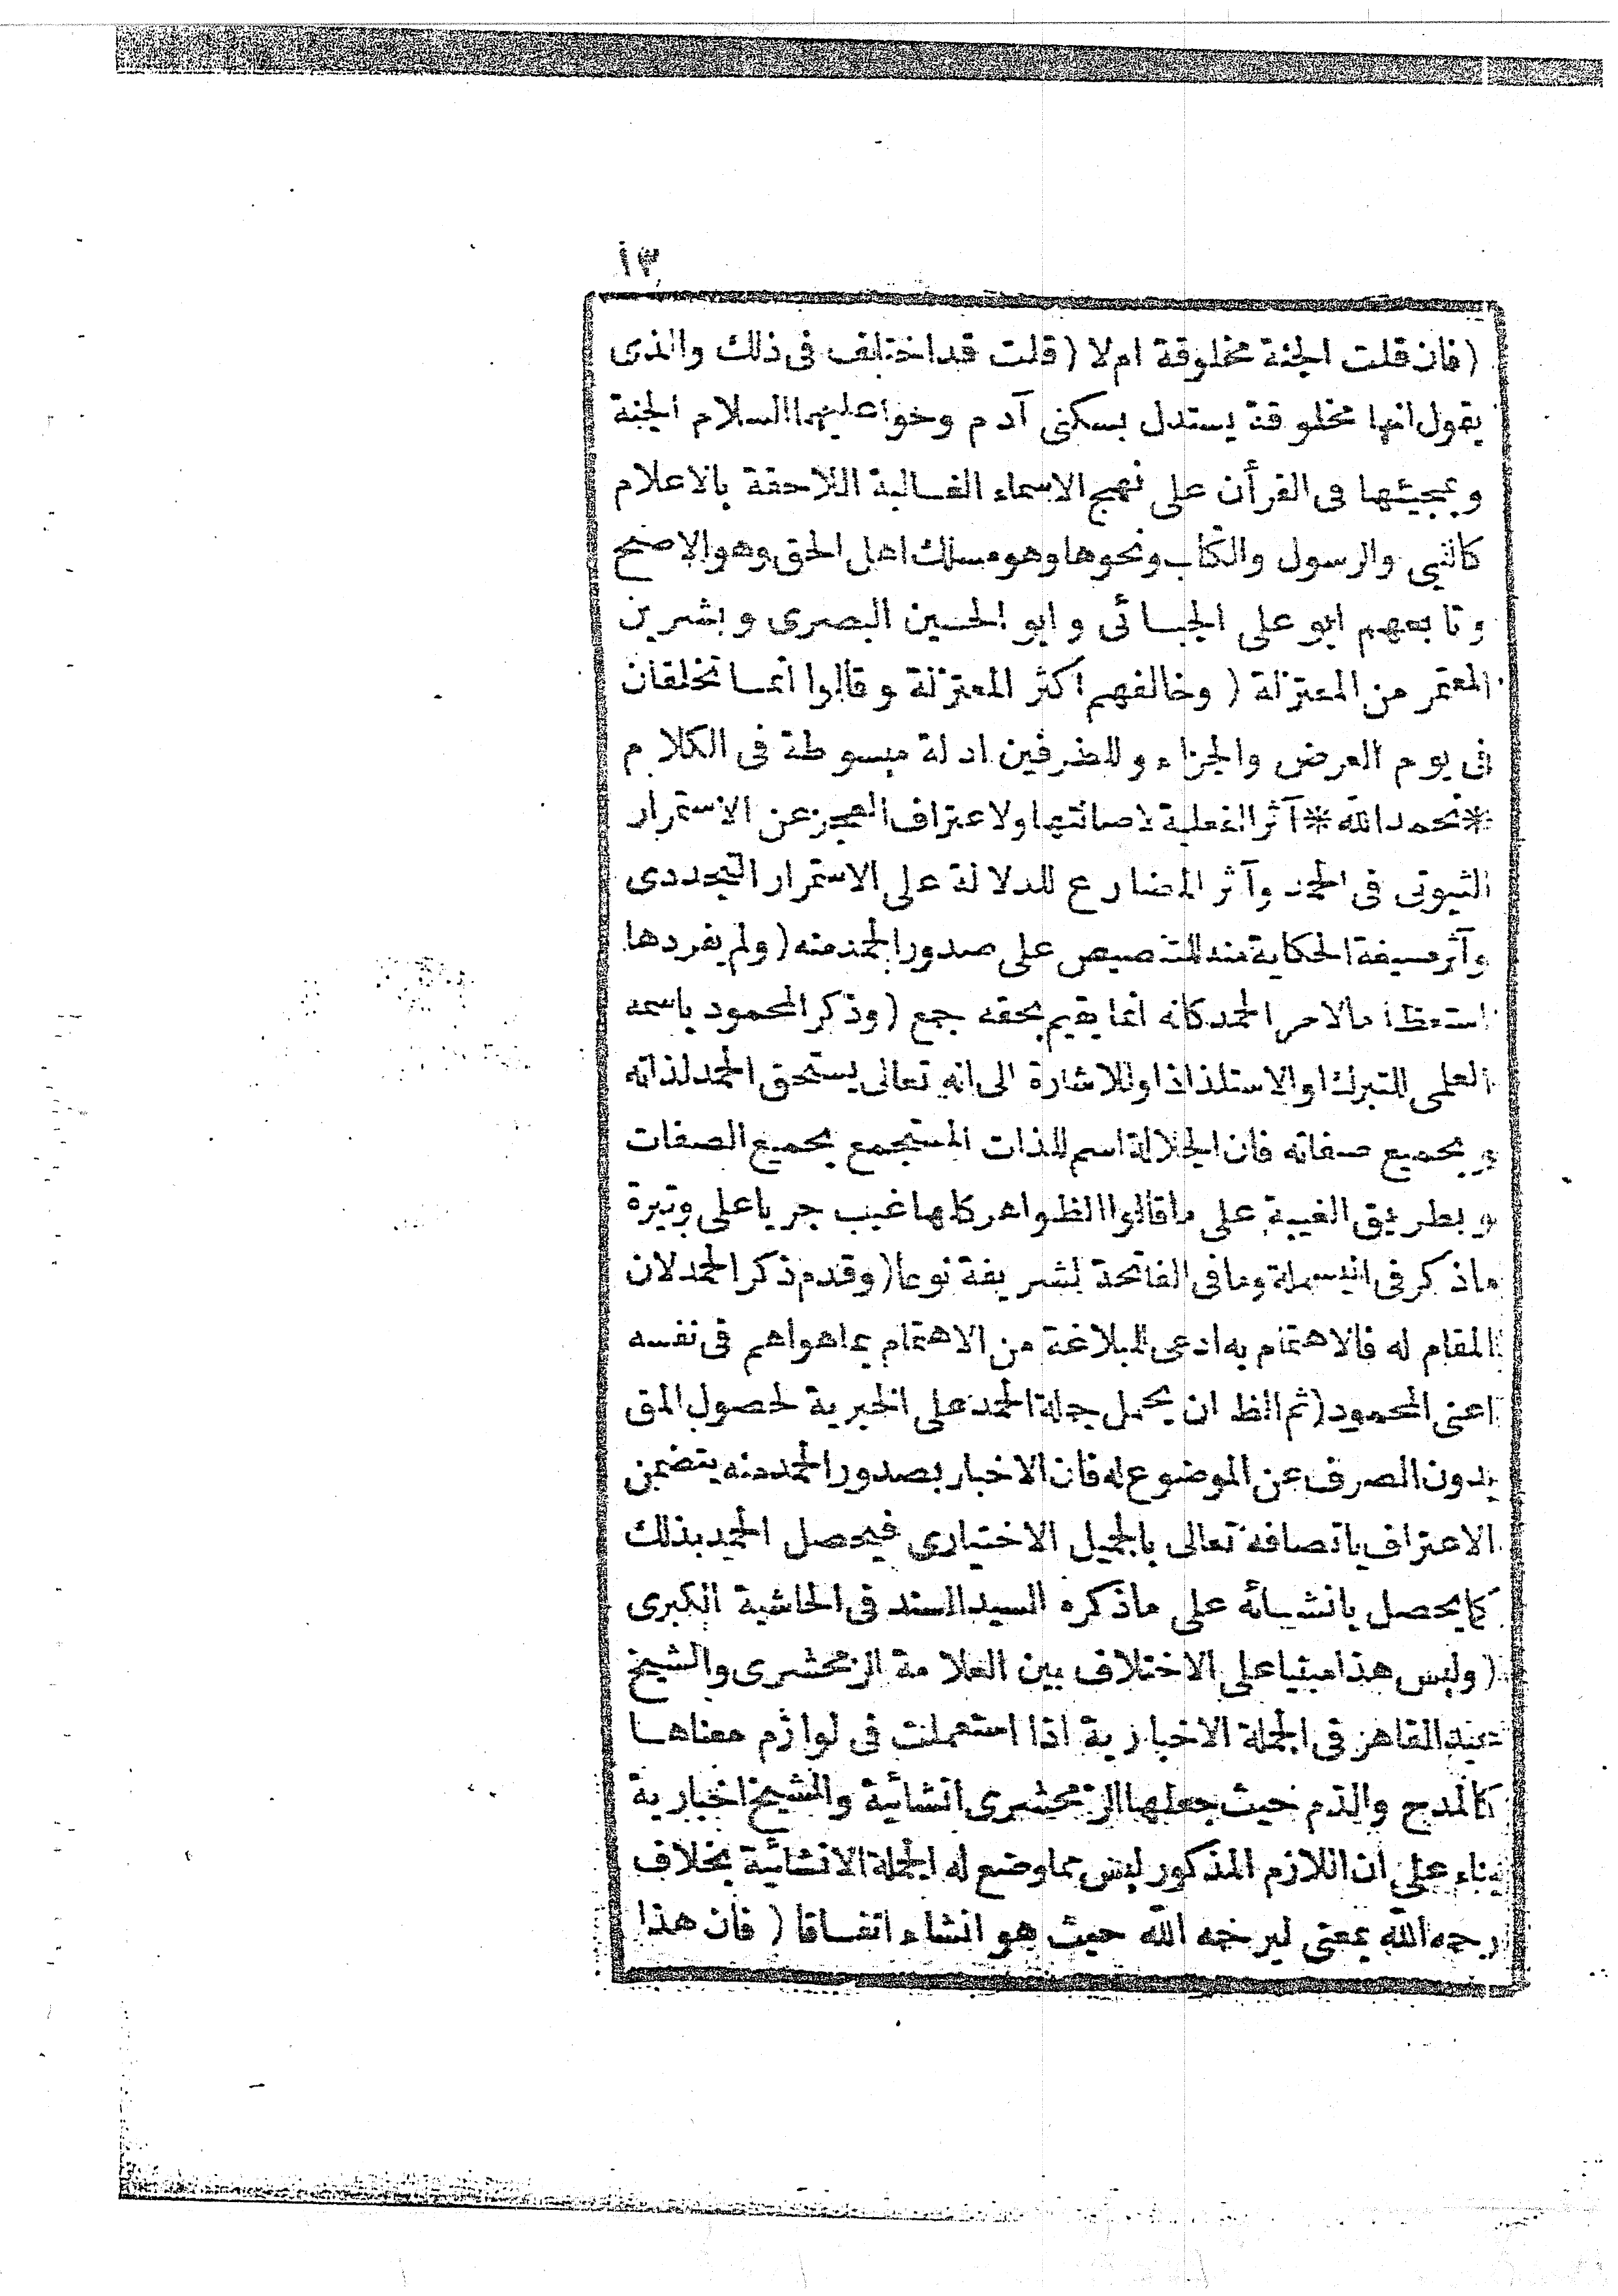 ١٣
(فان قلت الجنة مخلوقة ام لا (قلت قد اختلف فى ذلك والذى
يقول انها مخلوقة يستدل بسكنى آدم وحوا عليهما السلام الجنة
وبمجيئها فى القرأن على نهج الاسماء الغالبة اللاحقة بالاعلام
كالنبي والرسول والكتاب ونحوها وهو مسلك اهل الحق وهو الاصح
وتابعهم ابو على الجبائى وابو الحسين البصرى وبشر بن
المعتمر من المعتزلة (وخالفهم اكثر المعتزلة وقالوا انما تخلقان
فى يوم العرض والجزاء وللطرفين ادلة مبسوطة فى الكلام
*نحمد الله* آثر الفعلية لاصالتها ولاعتراف العجز عن الاستمرار
الثبوتى فى الحمد وآثر المضارع للدلالة على الاستمرار التجددى
وآثر صيغة الحكاية منه للتنصيص على صدور الحمد منه (ولم يفردها
استعظاما لامر الحمد كانه انما يقيم بحقه جمع (وذكر المحمود باسمه
العلمى للتبرك او الاستلذاذ او للاشارة الى انه تعالى يستحق الحمد لذاته
وبجميع صفاته فان الجلالة اسم للذات المستجمع بجميع الصفات
وبطريق الغيبة على ما قالوا الظواهر كلها غيب جريا على وتيرة
ما ذكر فى البسملة وما فى الفاتحة لشريفة نوعا (وقدم ذكر الحمد لان
المقام له فالاهتمام به ادعى للبلاغة من الاهتمام بما هو اهم فى نفسه
اعنى المحمود (ثم الظ ان يحمل جملة الحمد على الخبرية لحصول المق
بدون الصرف عن الموضوع له فان الاخبار بصدور الحمد منه يتضمن
الاعتراف باتصافه تعالى بالجميل الاختيارى فيحصل الحمد بذلك
كما يحصل بانشائه على ما ذكره السيد السند فى الحاشية الكبرى
(وليس هذا مبنيا على الاختلاف بين العلامة الزمخشرى والشيخ
عبد القاهر فى الجملة الاخبارية اذا استعملت فى لوازم معناها
كالمدح والذم حيث جعلها الزمخشرى انشائية والشيخ اخبارية
بناء على ان اللازم المذكور ليس مما وضع له الجملة الانشائية بخلاف
رحمه الله بمعنى ليرحمه الله حيث هو انشاء اتفاقا (فان هذا